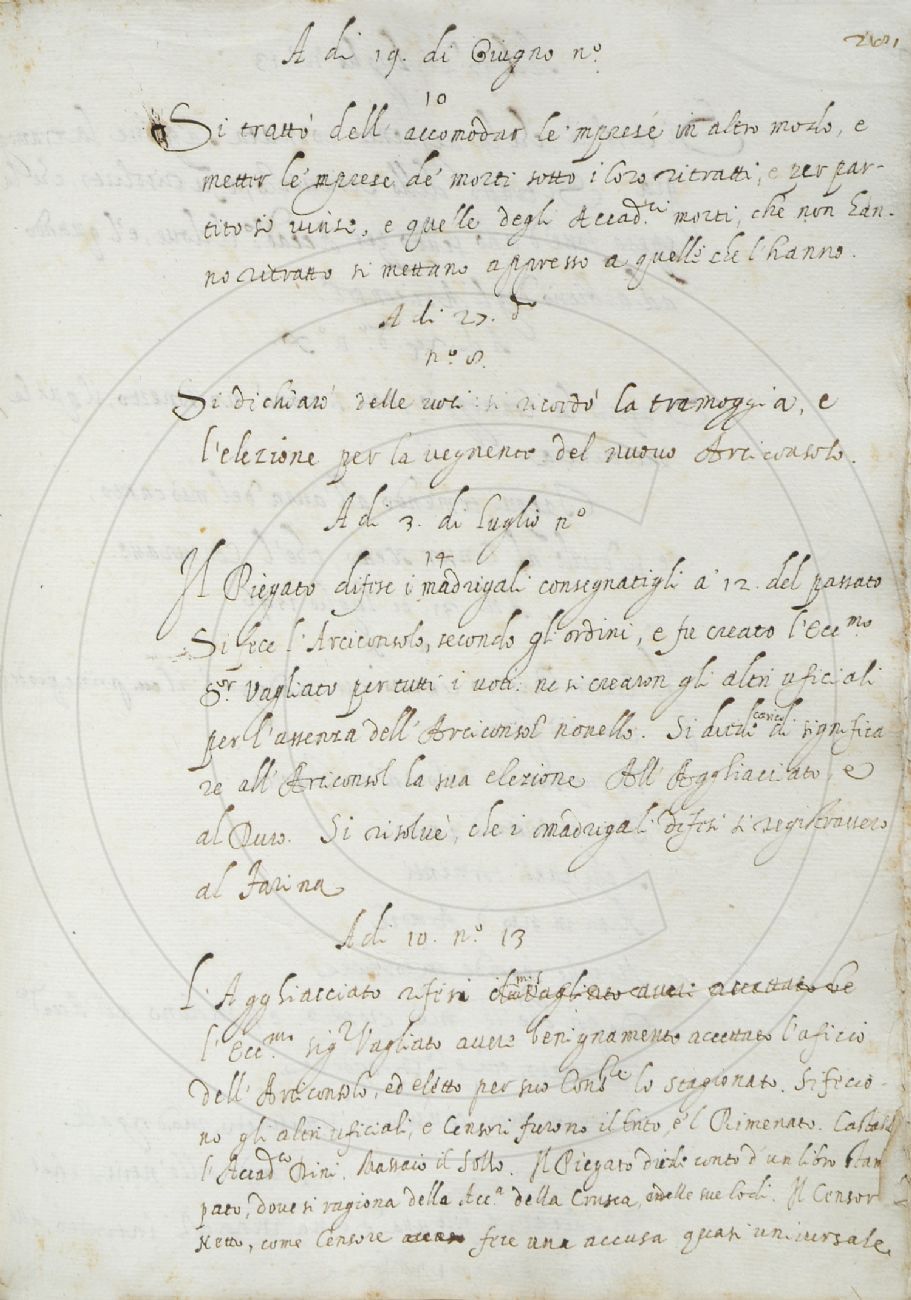 281
A di 19. di Giugno n.º
10
Si trattò dell'accomodar le 'mprese in altro modo, e
metter le 'mprese de' morti sotto i loro ritratti, e per par-
tito si vinse, e quelle degli Accad.ci morti, che non han-
no ritratto si mettano appresso a quelle che l'hanno.
A di 27. d.º
n.º 8.
Si dichiarò delle voci: si ricordò la tramoggia, e
l'elezione per la vegnente del nuovo Arciconsolo.
A di 3. di Luglio n.º
14
Il Piegato difese i madrigali consegnatigli a' 12. del passato
Si fece l'Arciconsolo, secondo gl'ordini, e fu creato l'Ecc.mo
S.or Vagliato per tutti i voti: ne si crearon gli altri uficiali
per l'assenza dell'Arciconsol novello. Si diede carico di significa
re all'Arciconsol la sua elezione All'Agghiacciato, e
al Duro. Si risolvè, che i madrigali difesi si registrassero
al Farina
A di 10. n.º 13
L'Agghiacciato riferì
l'Ecc.mo sig.r Vagliato avere benignamente accettato l'uficio
dell'Arciconsolo, ed eletto per suo Cons.re lo stagionato. Si fecio-
no gli altri uficiali, e Censori furono il Trito, e 'l Rimenato.
l'Accad.co Dini. Massaio il Sollo. Il Piegato diede conto d'un libro stam
pato, dove si ragiona della Acc.a della Crusca, e delle sue lodi. Il Censor
Netto, come Censore fece una accusa quasi universale